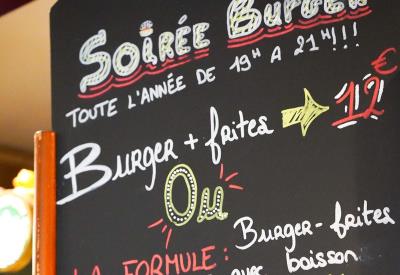 Soirée Burger
TOUTE L'ANNÉE DE 19H A 21H!!!
BURGER + frites → 12€
Ou
LA FORMULE :
BURGER-frites
avec boisson